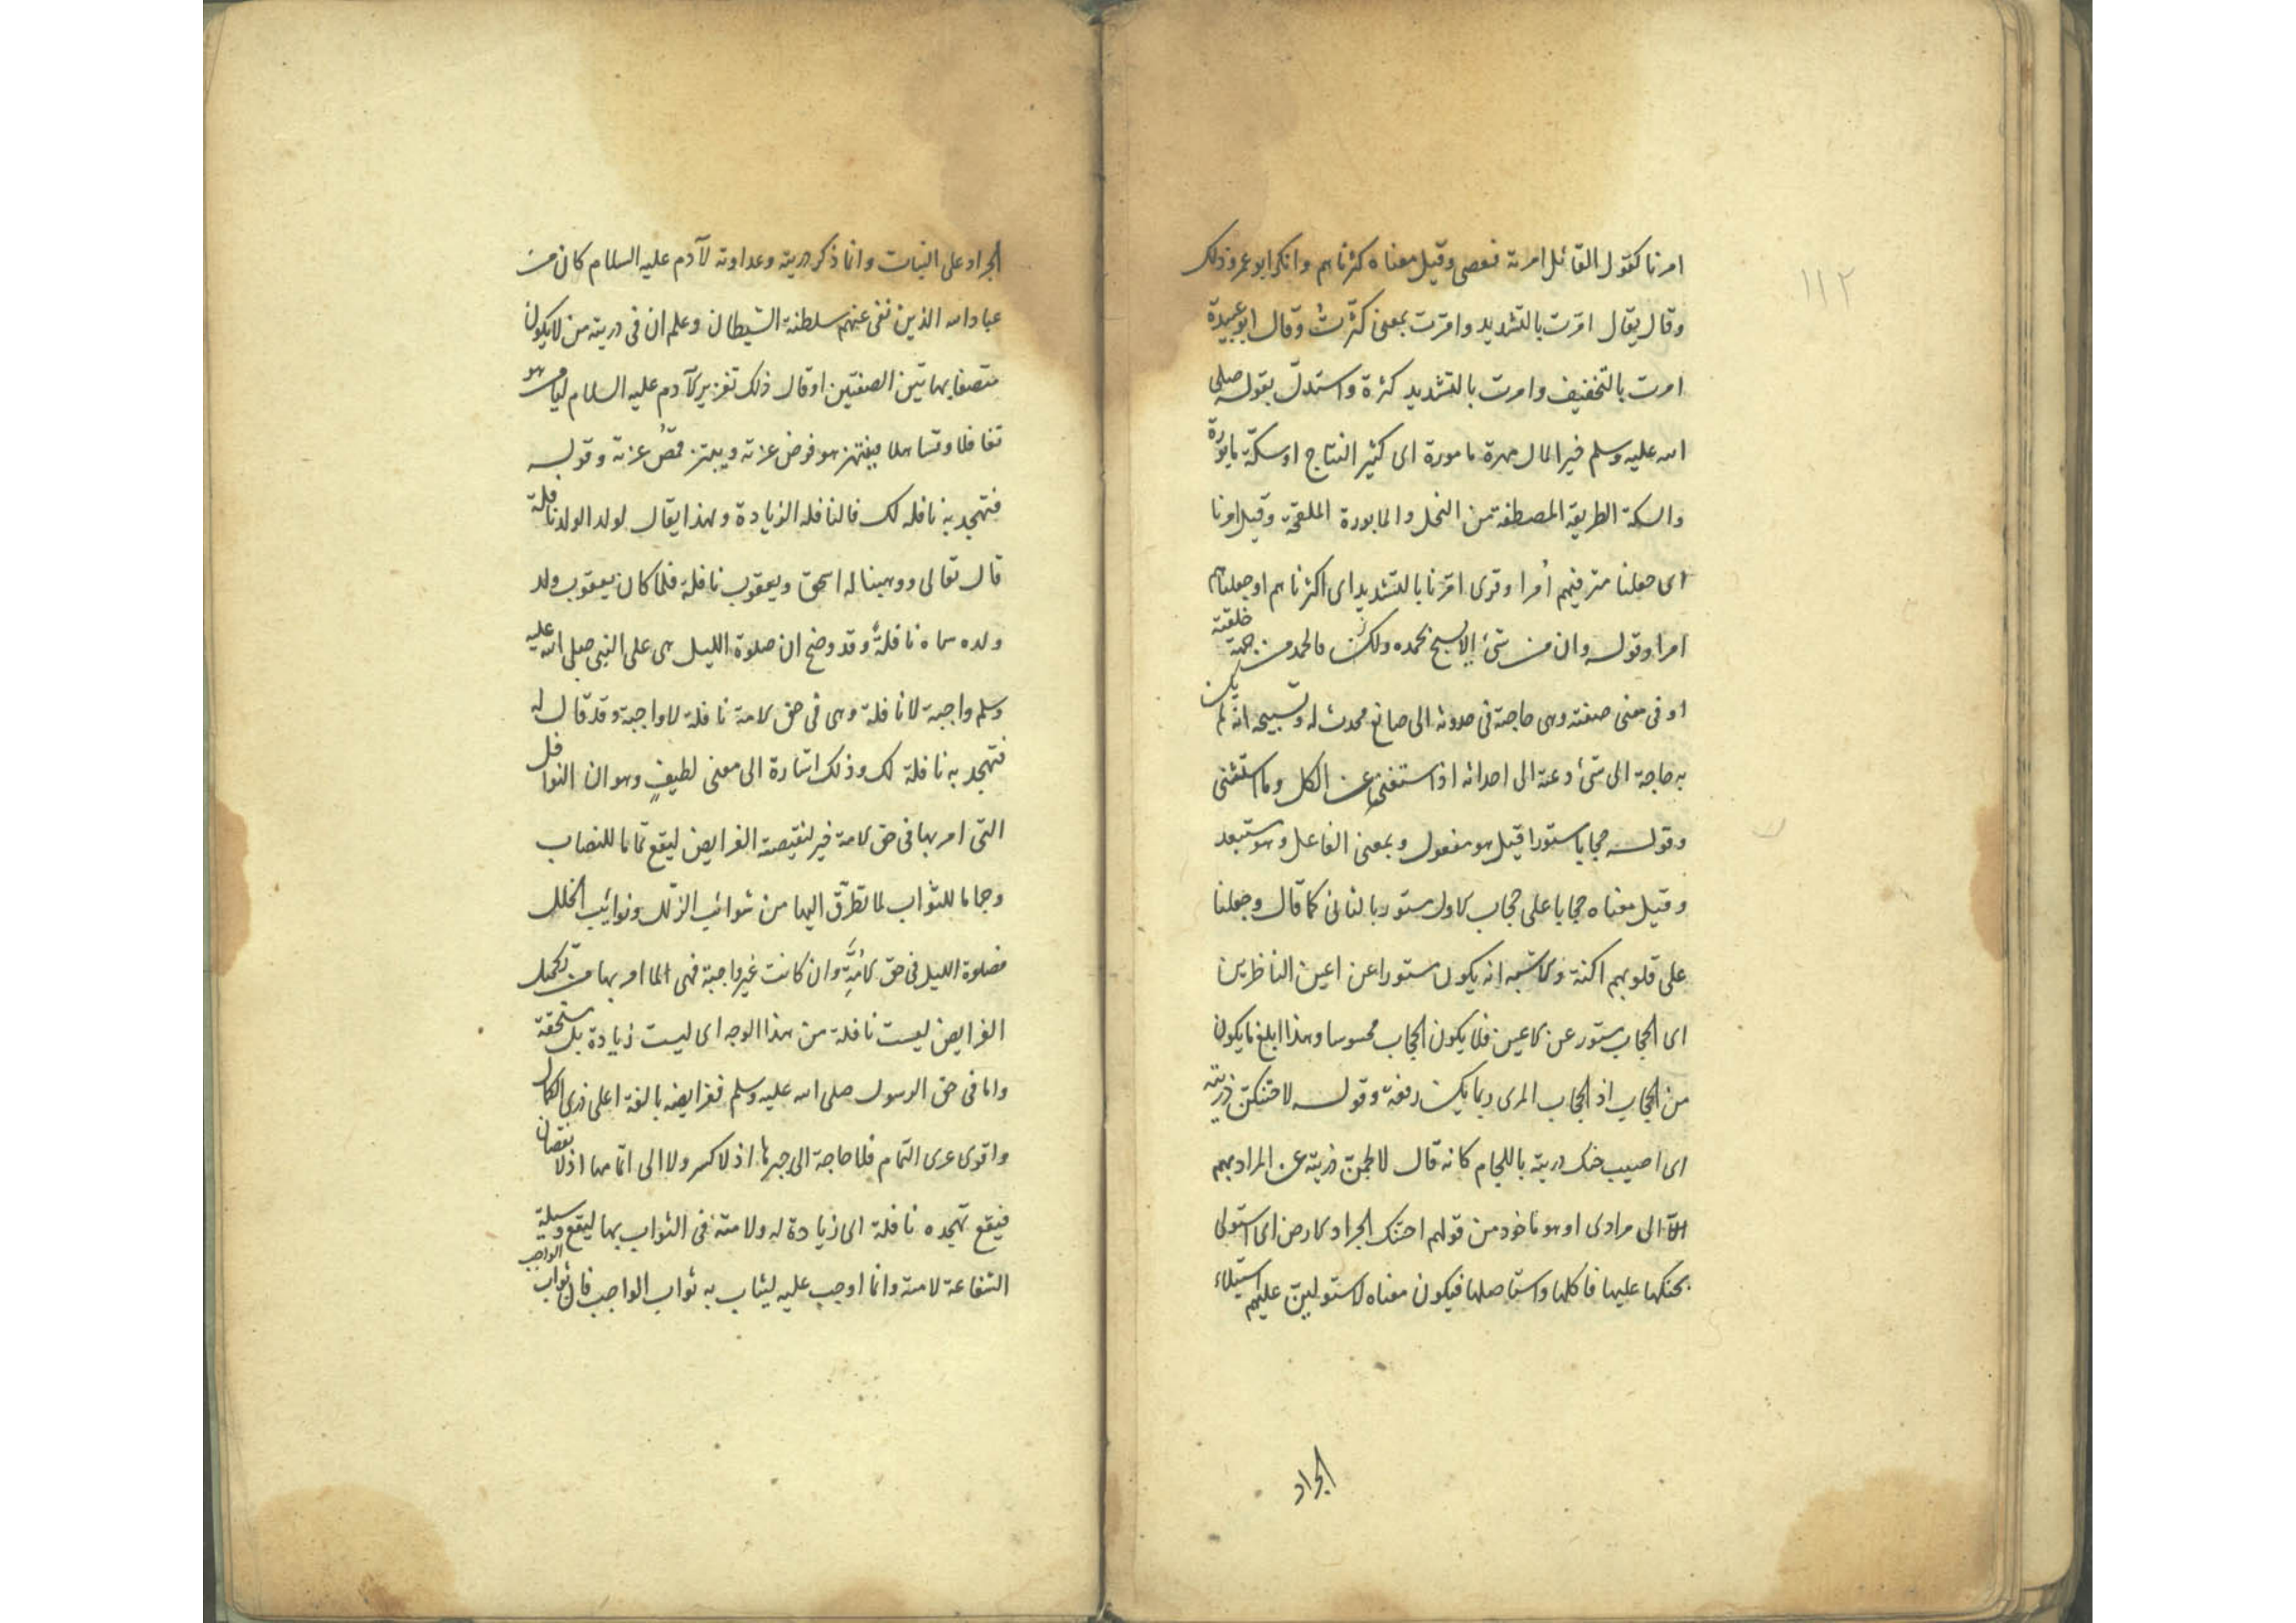 ١١٢
امرنا كقول القائل امرته فعصى وقيل معناه كثرناهم وانكر ابو عمرو ذلك
وقال يقال امّرت بالتشديد وامّرت بمعنى كثّرت وقال ابو عبيدة
امرت بالتخفيف وامرت بالتشديد كثرة واستدلّ بقوله صلى
الله عليه وسلم خير المال مهرة مامورة اى كثير النتاج او سكّة مابورة
والسكة الطريقة المصطفة من النخل والمابورة الملقحة وقيل امرنا
اى جعلنا مترفيهم أمرا وقرى امّرنا بالتشديد اى اكثرناهم او جعلناهم
امرا وقوله وان من شئ الا يسبح بحمده ولكن فالحمد من جهة خلقته
او فى معنى صنعته وهى حاجة فى حدوثه الى صانع محدث له وتسبيحه انه لم يكن
به حاجة الى شئ دعته الى احداثه اذا استغنى عن الكل وما استثنى
وقوله حجابا مستورا قيل هو مفعول وبمعنى الفاعل وهو مستبعد
وقيل معناه حجابا على حجاب كالاول مستور بالثانى كما قال وجعلنا
على قلوبهم اكنة والاشبه انه يكون مستورا عن اعين الناظرين
اى الحجاب مستور عن الاعين فلا يكون الحجاب محسوسا وهذا ابلغ ما يكون
من الحجاب اذ الحجاب المرى ربما يمكن رفعه وقوله لاحتنكن ذريته
اى اصيب حنك ذريته باللجام كانه قال لالجمن ذريته عن المراد بهم
الآ الى مرادى او هو ماخوذ من قولهم احتنك الجراد الارض اى استولى
بحنكها عليها فاكلها واستاصلها فيكون معناه لاستولين عليهم استيلاء
الجراد
الجراد على النبات وانما ذكر ذريته وعداوته لآدم عليه السلام كان من
عباد الله الذين نفى عنهم سلطنة الشيطان وعلم ان فى ذريته من لا يكون
متصفا بهاتين الصفتين او قال ذلك تغزير لآدم عليه السلام
تغافلا وتساهلا فينتهز هو فرض عزته ويبتز عزته وقوله
فتهجد به نافلة لك فالنافلة الزيادة ولهذا يقال لولد الولد نافلة
قال تعالى ووهبنا له اسحق ويعقوب نافلة فلما كان يعقوب ولد
ولده سماه نافلة وقد وضح ان صلوة الليل هى على النبى صلى الله عليه
وسلم واجبة لا نافلة وهى فى حق الامة نافلة لا واجبة وقد قال له
فتهجد به نافلة لك وذلك اشارة الى معنى لطيف وهو ان النوافل
التى امر بها فى حق الامة خير لنقيصة الفرايض ليقع تماما للنصاب
وجماما للثواب لما تطرّق اليها من شوائب الزلل ونوائب الخلل
فصلوة الليل فى حق الامّة وان كانت غير واجبة فهى لما امر بها من تكميل
الفرايض ليست نافلة من هذا الوجه اى ليست زيادة بل مستحقة
واما فى حق الرسول صلى الله عليه وسلم ففرايضه بالغة اعلى ذرى الكمال
واقوى عرى التمام فلا حاجة الى جبرها اذ لا كسر ولا الى اتمامها اذ لا نقصان
فيقع تهجده نافلة اى زيادة له ولامته فى الثواب بها ليقع وسيلة
الشفاعة لامته وانما اوجب عليه ليثاب به ثواب الواجب فان ثواب الواجب